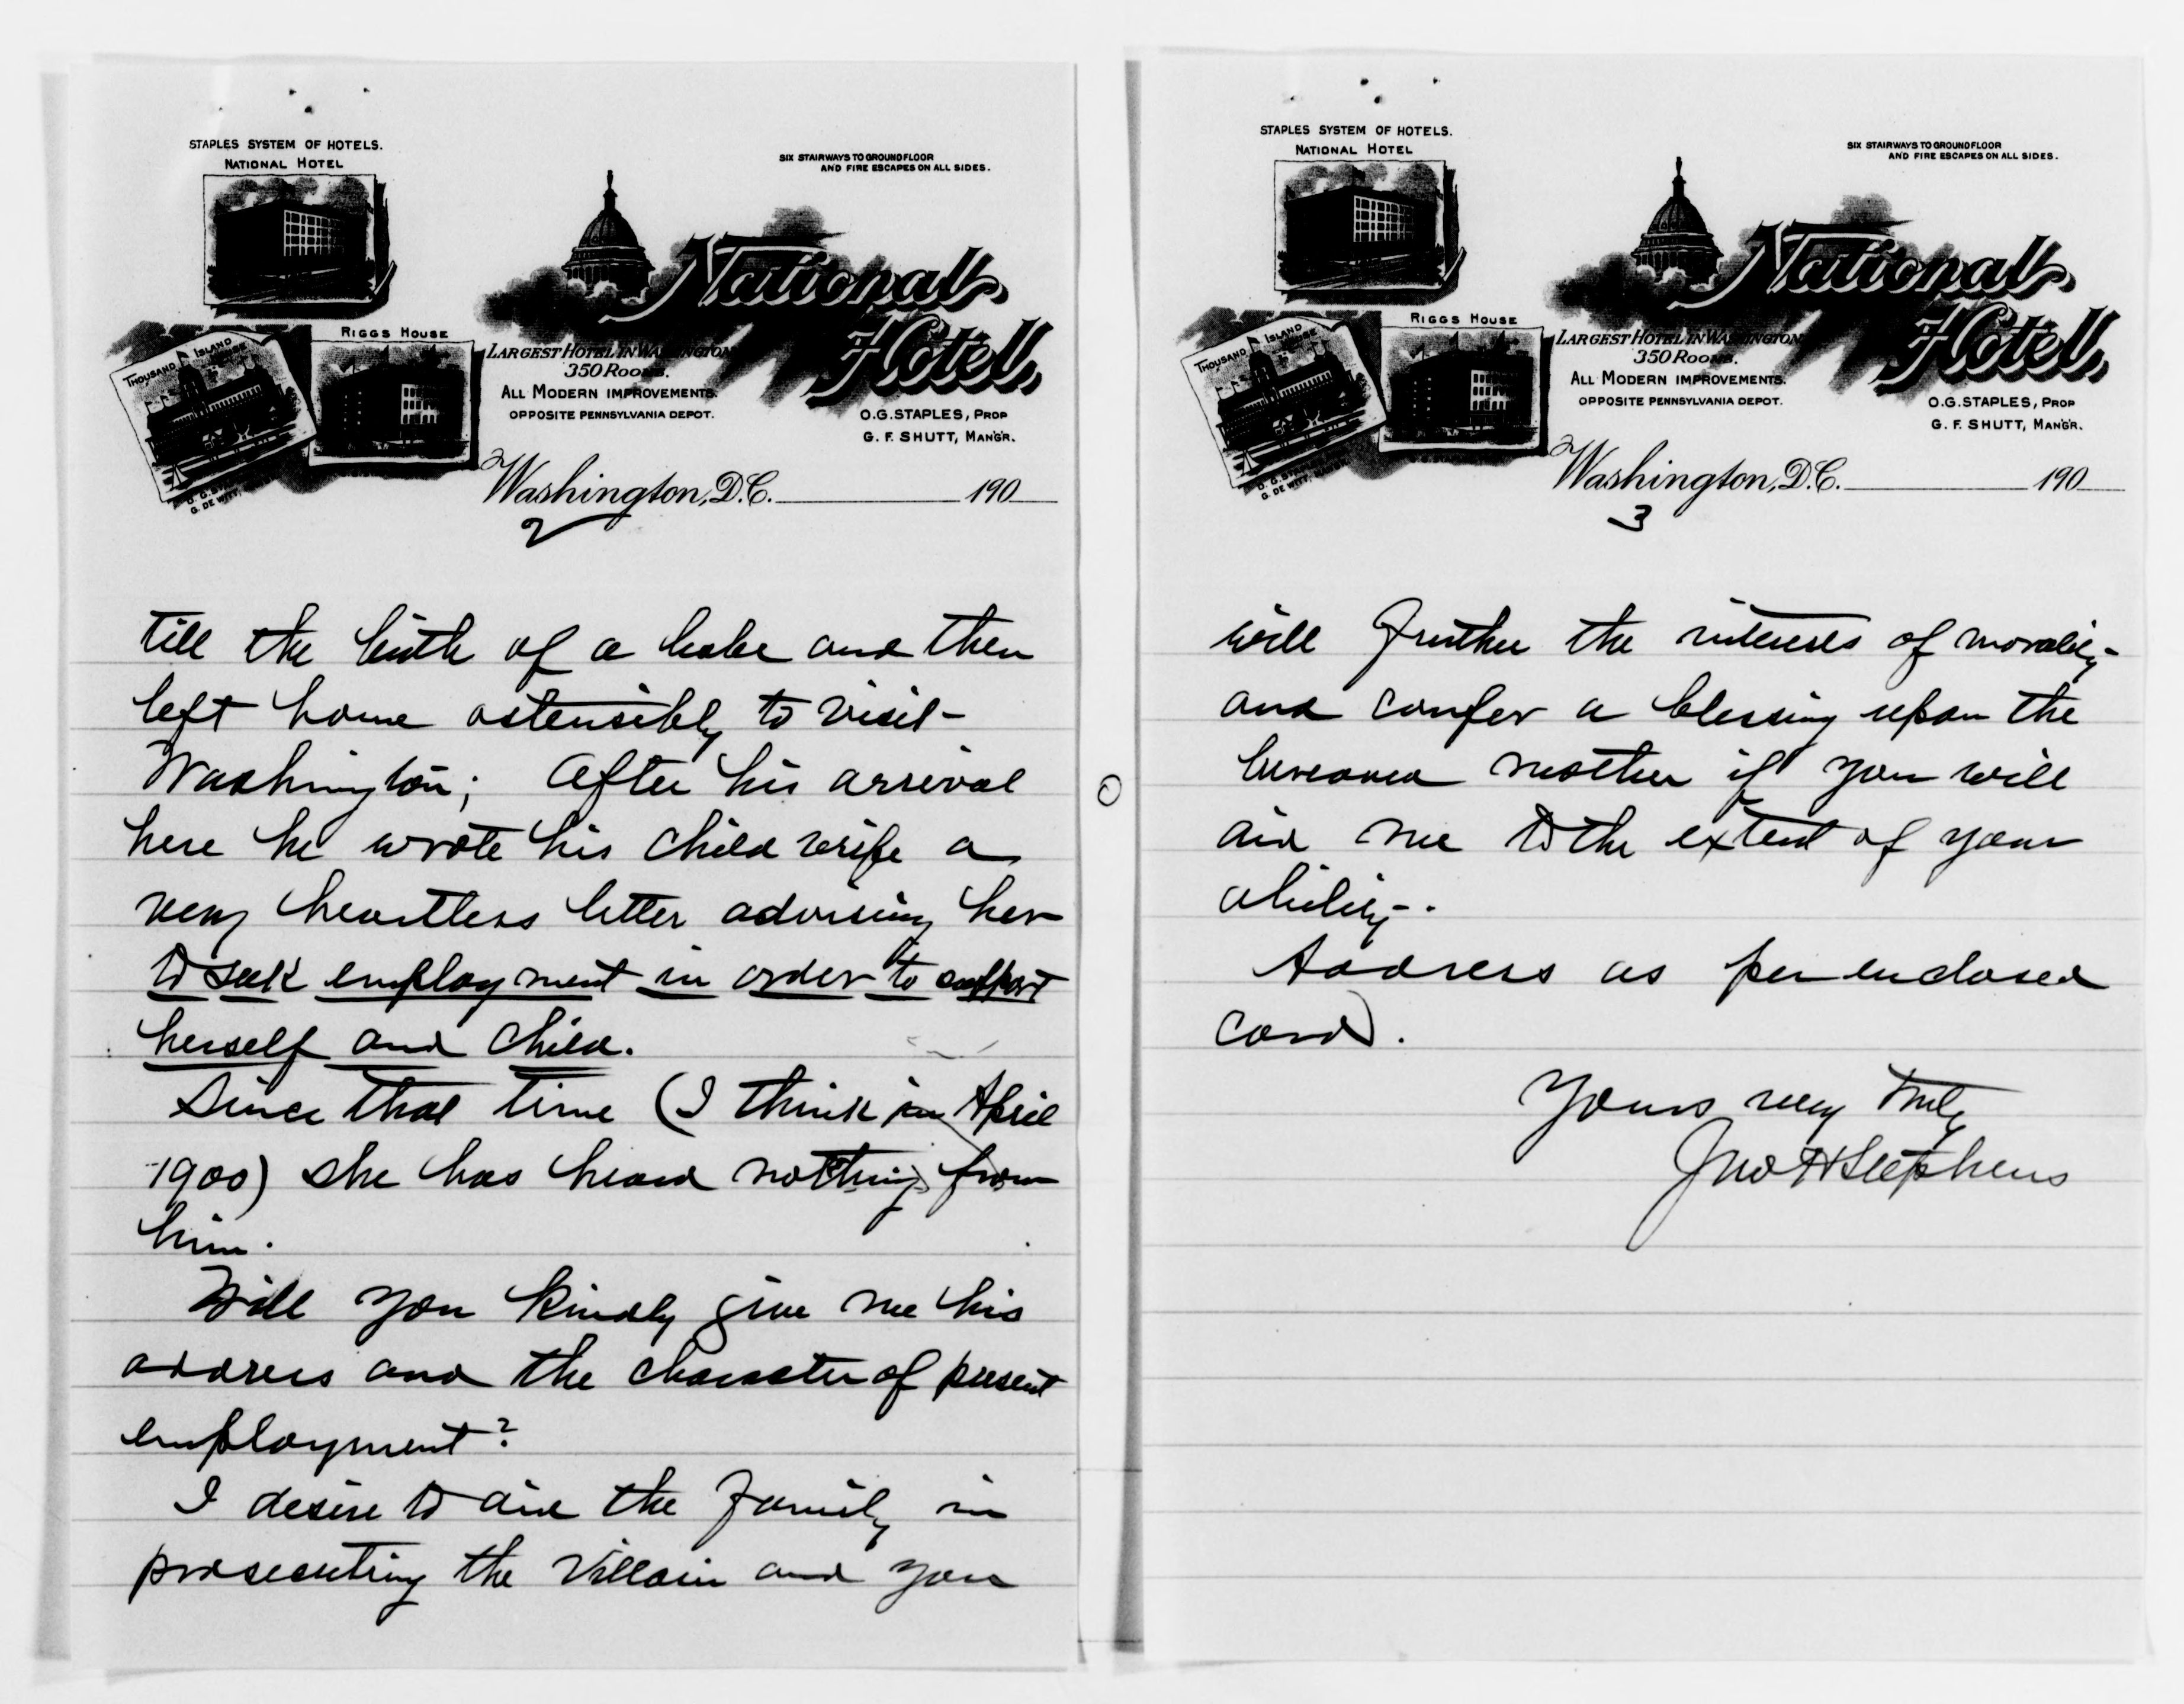 STAPLES SYSTEM OF HOTELS.
NATIONAL HOTEL
SIX STAIRWAYS TO GROUND FLOOR
AND FIRE ESCAPES ON ALL SIDES.
THOUSAND ISLAND HOUSE
RIGGS HOUSE
National
Hotel,
LARGEST HOTEL IN WASHINGTON
350 ROOMS.
ALL MODERN IMPROVEMENTS.
OPPOSITE PENNSYLVANIA DEPOT.
O.G. STAPLES, PROP
G. F. SHUTT, MANGR.
Washington, D.C. 190
2
till the birth of a babe and then
left home ostensibly to visit
Washington; After his arrival
here he wrote his child wife a
very heartless letter advising her
to seek employment in order to support
herself and child.
Since that time (I think in April
1900) she has heard nothing from
him.
Will you kindly give me his
address and the character of present
employment?
I desire to aid the family in
prosecuting the villain and you
STAPLES SYSTEM OF HOTELS.
NATIONAL HOTEL
SIX STAIRWAYS TO GROUND FLOOR
AND FIRE ESCAPES ON ALL SIDES.
THOUSAND ISLAND HOUSE
RIGGS HOUSE
National
Hotel,
LARGEST HOTEL IN WASHINGTON
350 ROOMS.
ALL MODERN IMPROVEMENTS.
OPPOSITE PENNSYLVANIA DEPOT.
O.G. STAPLES, PROP
G. F. SHUTT, MANGR.
Washington, D.C. 190
3
will further the interests of morality
and confer a blessing upon the
bereaved mother if you will
aid me to the extent of your
ability.
Address as per enclosed
card.
Yours very truly
Jno H Stephens